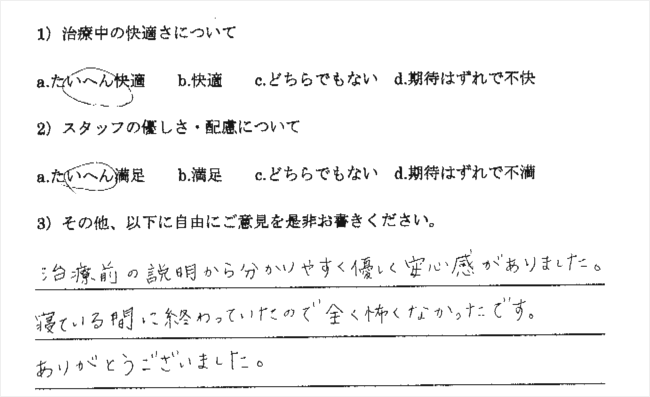 1）治療中の快適さについて
a.たいへん快適　b.快適　c.どちらでもない　d.期待はずれで不快
2）スタッフの優しさ・配慮について
a.たいへん満足　b.満足　c.どちらでもない　d.期待はずれで不満
3）その他、以下に自由にご意見を是非お書きください。
治療前の説明から分かりやすく優しく安心感がありました。
寝ている間に終わっていたので全く怖くなかったです。
ありがとうございました。